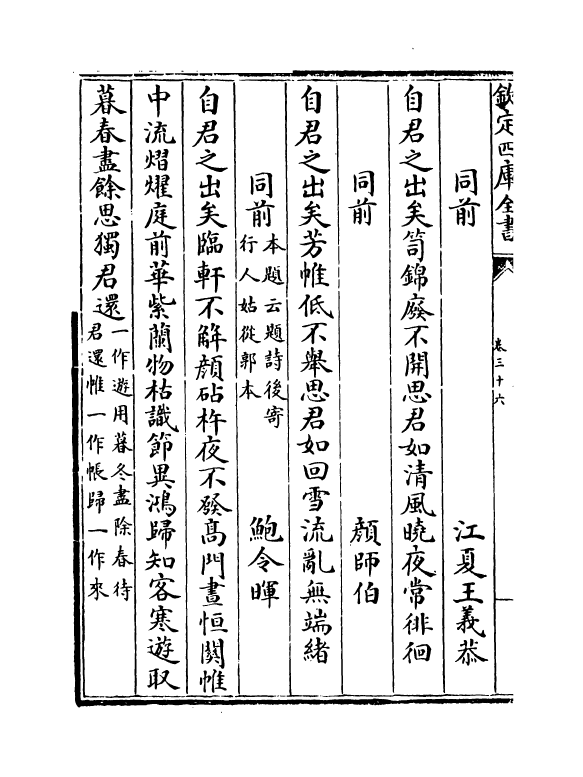 欽定四庫全書
卷三十六
同前 江夏王義恭
自君之出矣笥錦廢不開思君如清風曉夜常徘徊
同前 顏師伯
自君之出矣芳帷低不舉思君如回雪流亂無端緒
同前 本題云題詩後寄行人姑從郭本 鮑令暉
自君之出矣臨軒不解顏砧杵夜不發髙門晝恒闗帷
中流熠燿庭前華紫蘭物枯識節異鴻歸知客寒遊取
暮春盡餘思獨君還 一作遊用暮冬盡除春待君還帷一作帳歸一作來